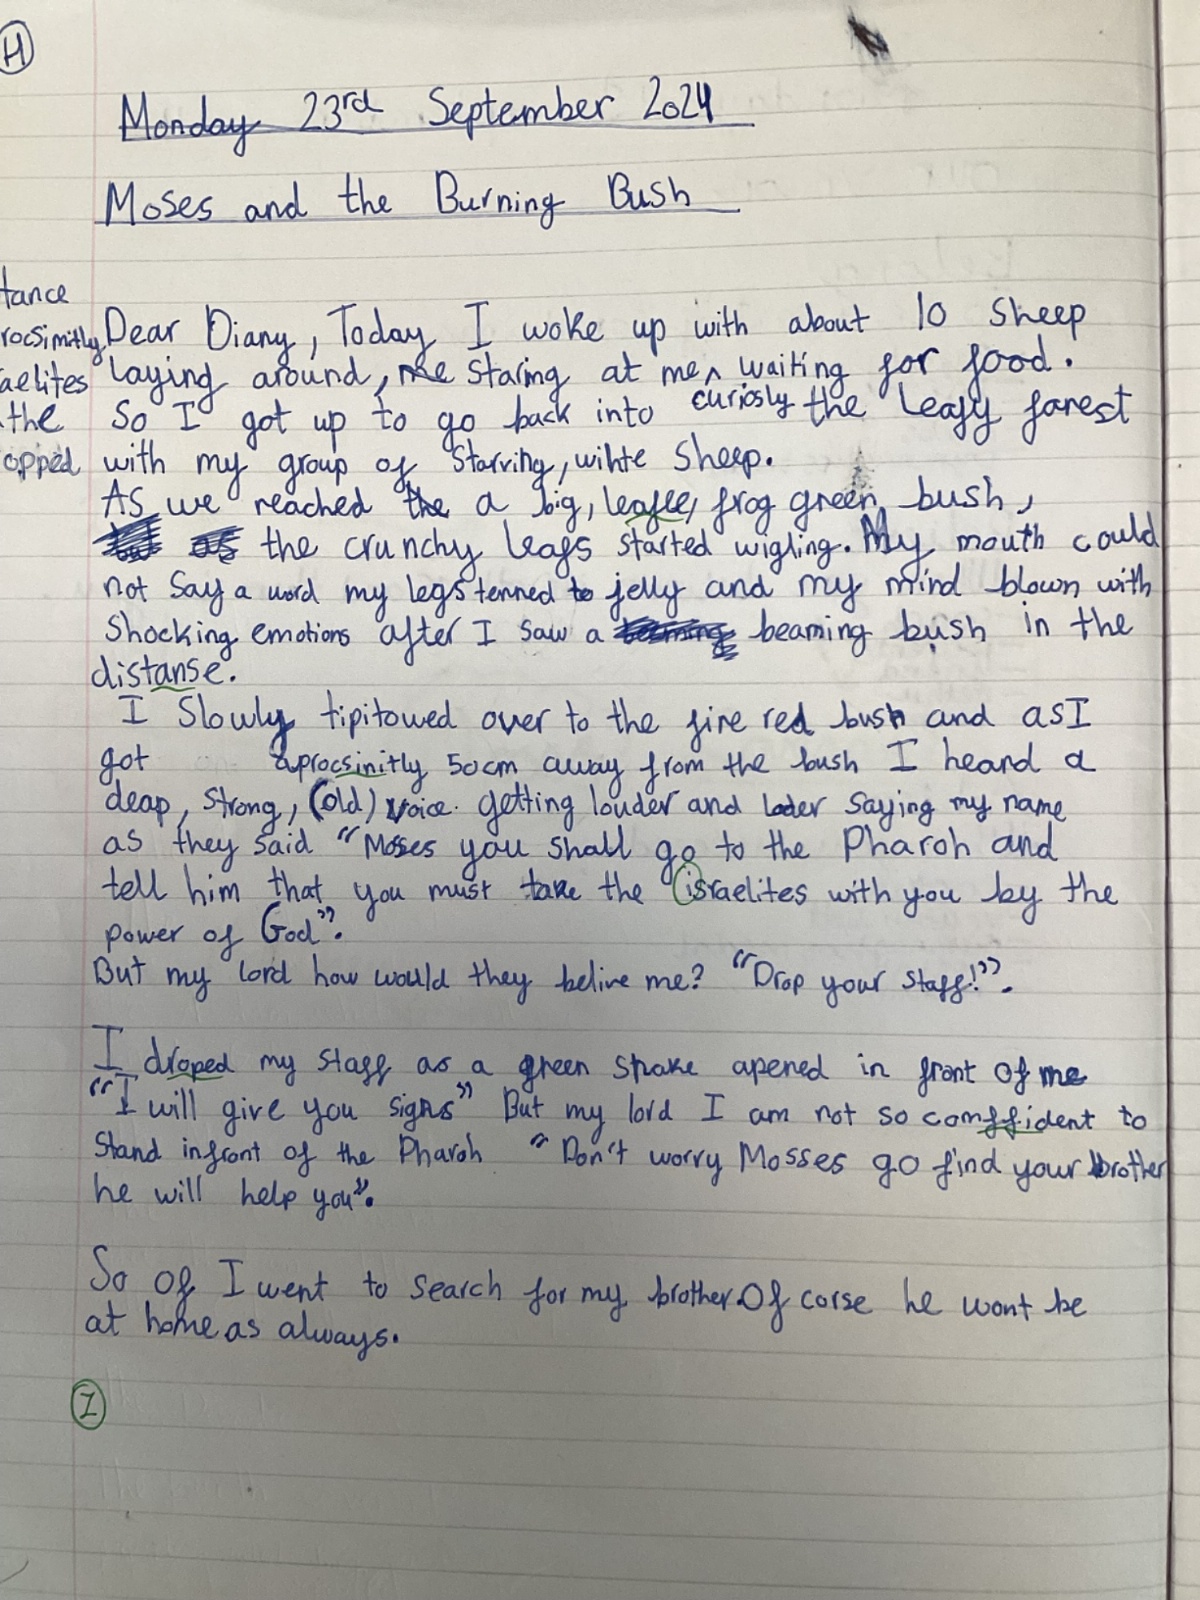 H
Monday 23rd September 2024
Moses and the Burning Bush
tance
rocsimitly
aelites
the
opped
Dear Diany, Today I woke up with about 10 sheep
laying around, me staring at me ^ waiting for food.
curiosly
So I got up to go back into the leafy forest
with my group of starving, wihte sheep.
As we reached the a big, leafee, frog green bush,
the crunchy leafs started wigling. My mouth could
not say a word my legs tenned to jelly and my mind blown with
shocking emotions after I saw a beaming bush in the
distanse.
I slowly tipitowed over to the fire red bush and as I
got aprocsinitly 50cm away from the bush I heard a
deap, strong, (old) voice. getting louder and loder saying my name
as they said "Moses you shall go to the Pharoh and
tell him that you must take the israelites with you by the
power of God".
But my lord how would they belive me? "Drop your staff!".
I droped my staff as a green snake apened in front of me
"I will give you signs" But my lord I am not so comffident to
stand infront of the Pharoh "Don't worry Mosses go find your brother
he will help you".
So of I went to search for my brother. Of corse he wont be
at home as always.
I